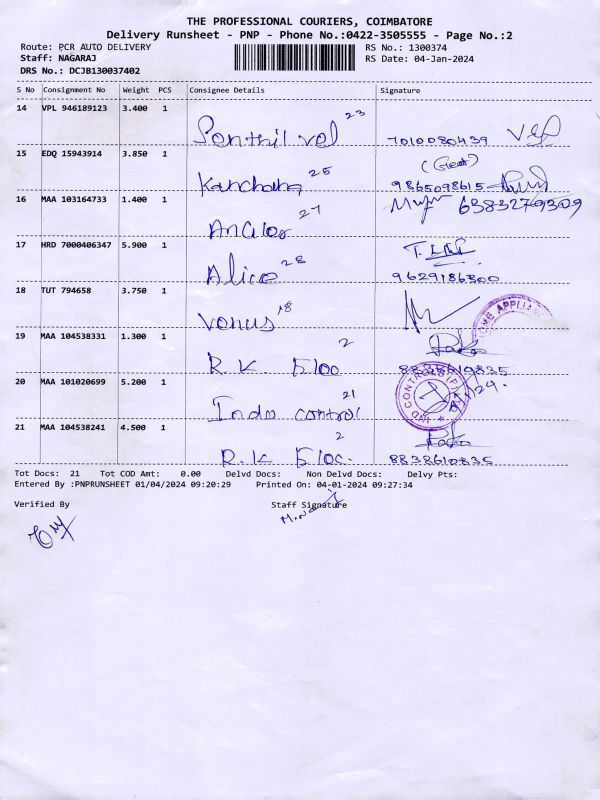 THE PROFESSIONAL COURIERS, COIMBATORE
Delivery Runsheet - PNP - Phone No.:0422-3505555 - Page No.:2
Route: PCR AUTO DELIVERY RS No.: 1300374
Staff: NAGARAJ RS Date: 04-Jan-2024
DRS No.: DCJB130037402
S No Consignment No Weight PCS Consignee Details Signature
14 VPL 946189123 3.400 1 Senthil vel 23 7010080439
15 EDQ 15943914 3.850 1 Kanchana 25 9865098615
16 MAA 103164733 1.400 1 27 6383279309
17 HRD 7000406347 5.900 1 Alice 28 9629186300
18 TUT 794658 3.750 1 Venus 18
HOME APPLIANC
19 MAA 104538331 1.300 1 R.K 2
20 MAA 101020699 5.200 1 Indo control 21
IND CONTROLS
21 MAA 104538241 4.500 1 R.K 2 8838610835
Tot Docs: 21 Tot COD Amt: 0.00 Delvd Docs: Non Delvd Docs: Delvy Pts:
Entered By :PNPRUNSHEET 01/04/2024 09:20:29 Printed On: 04-01-2024 09:27:34
Verified By Staff Signature